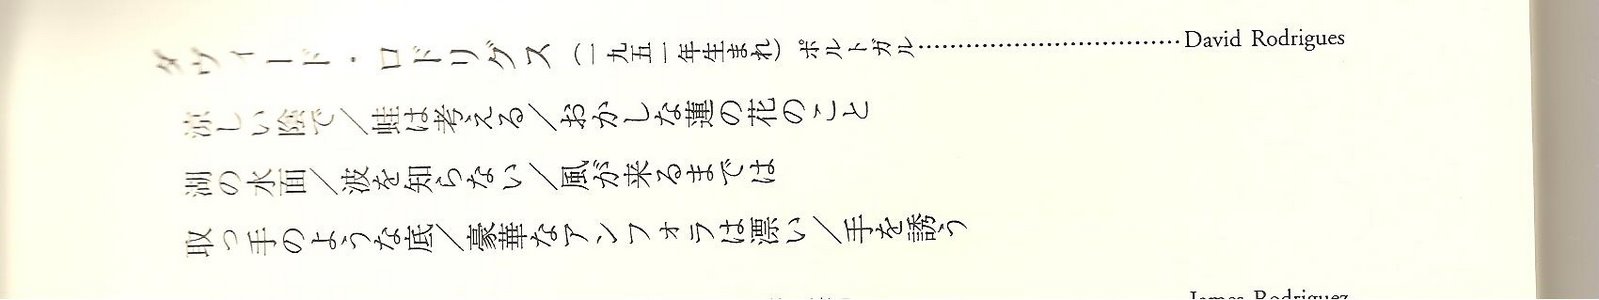 ダヴィード・ロドリグス（一九五一年生まれ）ポルトガル………………………………David Rodrigues
涼しい陰で／蛙は考える／おかしな蓮の花のこと
湖の水面／波を知らない／風が来るまでは
取っ手のような底／豪華なアンフォラは漂い／手を誘う
James Rodriguez